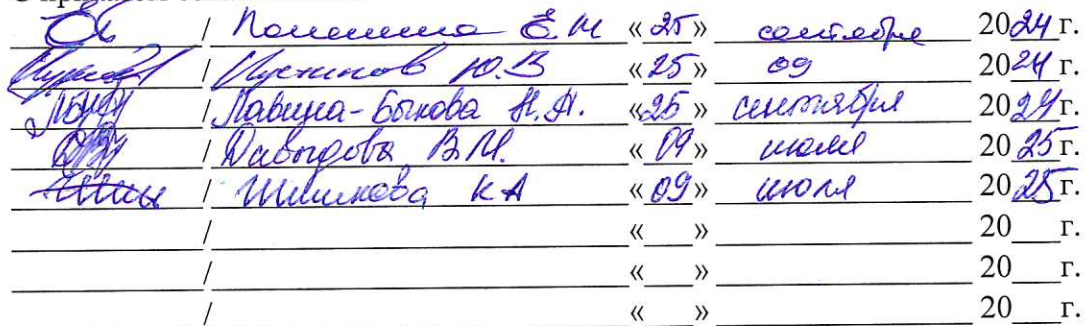 / Е.М «25» сентября 2024 г.
/ Ю.В «25» 09 2024 г.
/ Лавина-Быкова Н.А. «25» сентября 2024 г.
/ Давыдова В.М. «09» июля 2025 г.
/ К А «09» июля 2025 г.
/ « » 20 г.
/ « » 20 г.
/ « » 20 г.